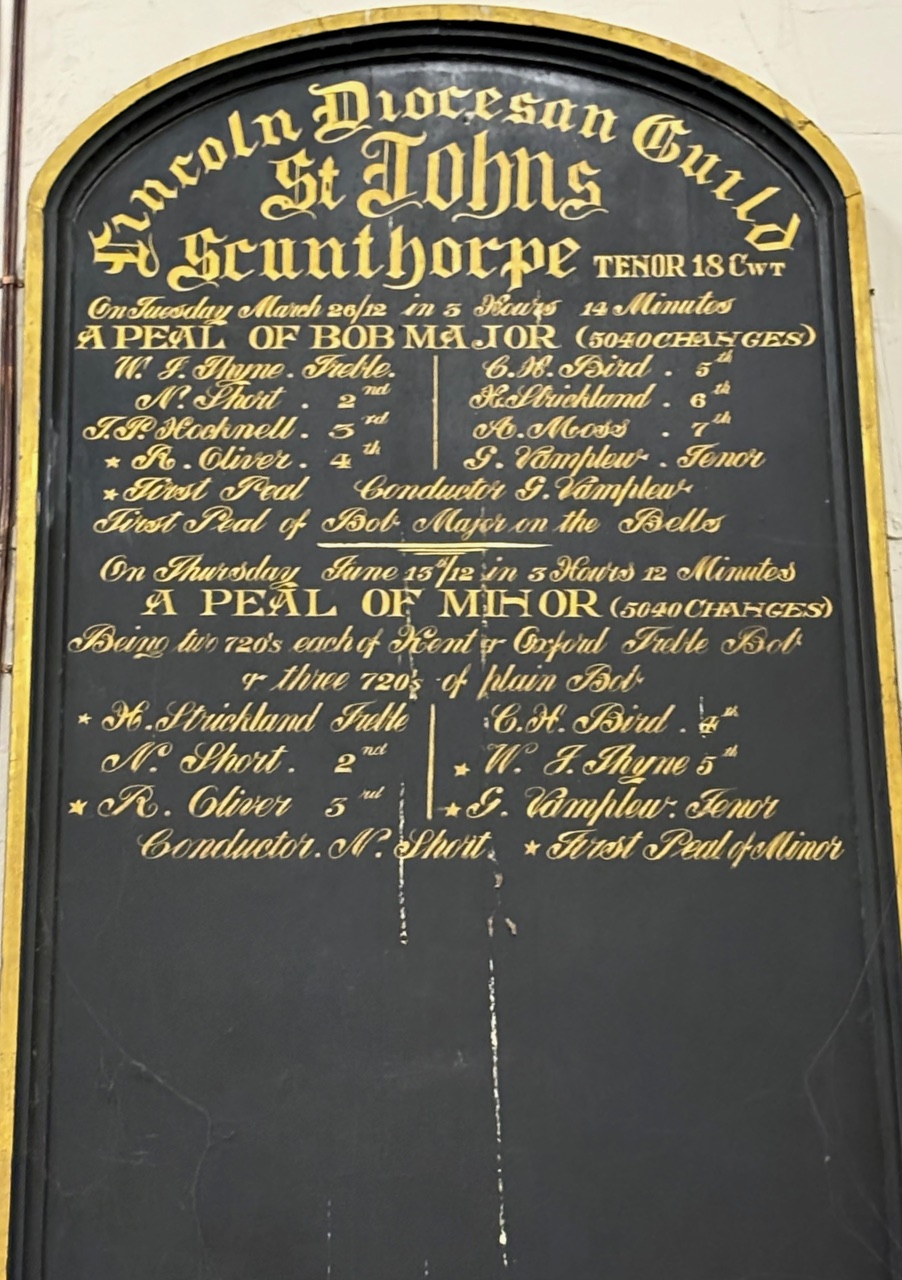 Lincoln Diocesan Guild
St Johns
Scunthorpe TENOR 18 CWT
On Tuesday March 26/12 in 3 Hours 14 Minutes
A PEAL OF BOB MAJOR (5040 CHANGES)
W. J. Thyne. Treble. C. H. Bird. 5th
N. Short. 2nd H. Strickland. 6th
J. P. Hocknell. 3rd A. Moss. 7th
* R. Oliver. 4th G. Vamplew. Tenor
* First Peal Conductor G. Vamplew
First Peal of Bob Major on the Bells
On Thursday June 13th/12 in 3 Hours 12 Minutes
A PEAL OF MINOR (5040 CHANGES)
Being two 720's each of Kent & Oxford Treble Bob
& three 720s of plain Bob
* H. Strickland Treble C. H. Bird. 4th
N. Short. 2nd * W. J. Thyne 5th
* R. Oliver 3rd * G. Vamplew. Tenor
Conductor. N. Short. * First Peal of Minor